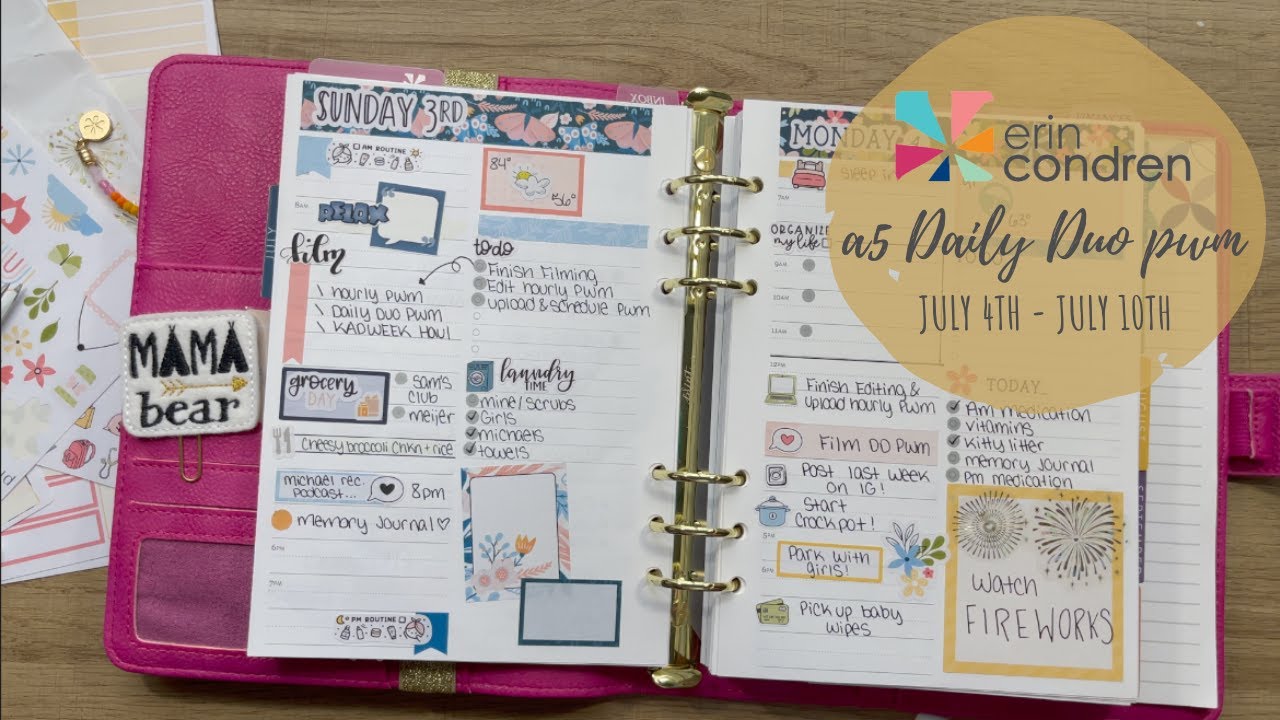 SUNDAY 3RD
AM ROUTINE
RELAX
film
\ hourly pwm
\ Daily Duo PWM
\ KADWEEK Haul
grocery
DAY
sam's
club
meijer
Cheesy broccoli Chkn + rice
michael rec.
podcast...
8pm
memory Journal
6PM
7PM
PM ROUTINE
84°
56°
to do
Finish Filming
Edit hourly pwm
upload & schedule pwm
laundry
TIME
mine/scrubs
Girls
michaels
towels
JULY
MAMA
bear
INBOX
MONDAY 4
Sleep in
ORGANIZE
my life
9AM
10AM
11AM
12PM
Finish Editing &
upload hourly pwm
Film DD PWM
Post last week
on IG!
Start
crockpot!
5PM
Park with
girls!
6PM
Pick up baby
wipes
63°
TODAY
Am medication
vitamins
Kitty litter
memory journal
pm medication
watch
FIREWORKS
AUGUST
erin
condren
a5 Daily Duo pwm
JULY 4TH - JULY 10TH